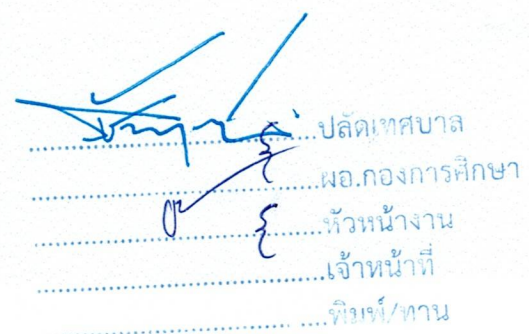 ปลัดเทศบาล
ผอ.กองการศึกษา
หัวหน้างาน
เจ้าหน้าที่
พิมพ์/ทาน